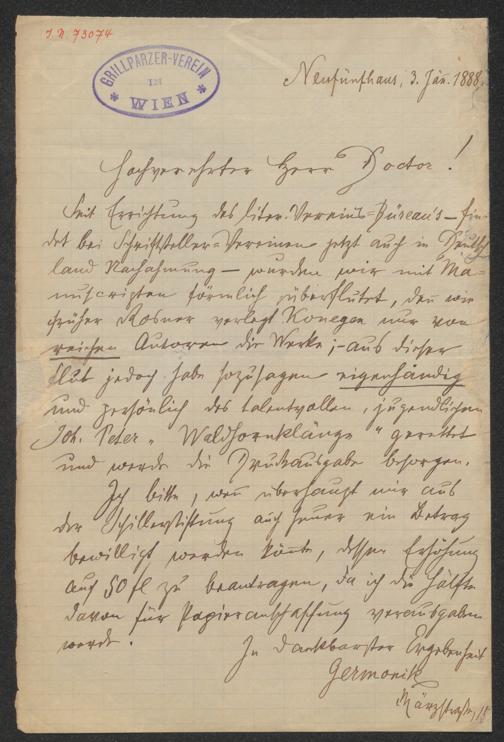 J.N. 73074
GRILLPARZER-VEREIN
IN
WIEN
Neufünfhaus, 3. Jän. 1888.
Hochverehrter Herr Doctor!
Seit Errichtung des liter. Vereins-Büreau's – fin-
det bei Schriftsteller-Vereinen jetzt auch in Deutsch
land Nachahmung – wurden wir mit Ma-
nuscripten förmlich überflutet, den wie
früher Rosner verlegt Konegen nur von
reichen Autoren die Werke; – aus dieser
Flut jedoch habe sozusagen eigenhändig
und persönlich des talentvollen, jugendlichen
Joh. Peter „Waldhornklänge" gerettet
und werde die Druckausgabe besorgen.
Ich bitte, wen überhaupt mir aus
der Schillerstiftung auch heuer ein Betrag
bewilligt werden könte, dessen Erhöhung
auf 50 fl zu beantragen, da ich die Hälfte
davon für Papieranschaffung verausgaben
werde.
In dankbarster Ergebenheit
Germonik
Märzstraße, 18